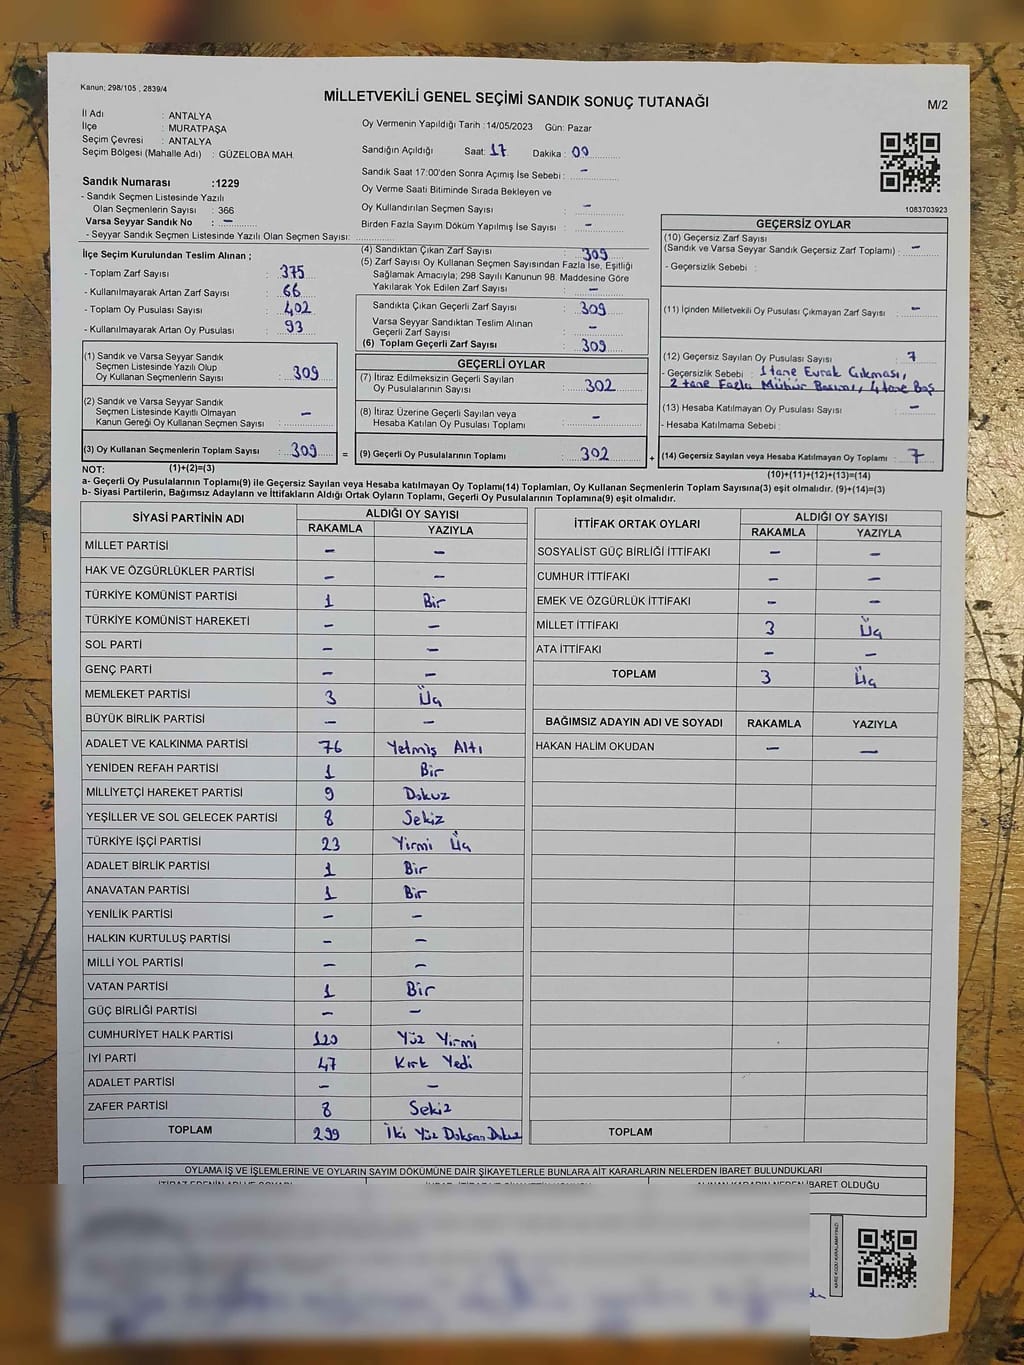 Kanun; 298/105 , 2839/4
MİLLETVEKİLİ GENEL SEÇİMİ SANDIK SONUÇ TUTANAĞI
M/2
İl Adı : ANTALYA
İlçe : MURATPAŞA
Seçim Çevresi : ANTALYA
Seçim Bölgesi (Mahalle Adı) : GÜZELOBA MAH.
Oy Vermenin Yapıldığı Tarih :14/05/2023 Gün: Pazar
Sandığın Açıldığı Saat: 17 Dakika : 00
Sandık Saat 17:00'den Sonra Açımış İse Sebebi : -
Oy Verme Saati Bitiminde Sırada Bekleyen ve
Oy Kullandırılan Seçmen Sayısı : -
Birden Fazla Sayım Döküm Yapılmış İse Sayısı : -
1083703923
Sandık Numarası :1229
- Sandık Seçmen Listesinde Yazılı
Olan Seçmenlerin Sayısı : 366
Varsa Seyyar Sandık No : -
- Seyyar Sandık Seçmen Listesinde Yazılı Olan Seçmen Sayısı:
İlçe Seçim Kurulundan Teslim Alınan ;
- Toplam Zarf Sayısı : 375
- Kullanılmayarak Artan Zarf Sayısı : 66
- Toplam Oy Pusulası Sayısı : 402
- Kullanılmayarak Artan Oy Pusulası : 93
(1) Sandık ve Varsa Seyyar Sandık
Seçmen Listesinde Yazılı Olup
Oy Kullanan Seçmenlerin Sayısı : 309
(2) Sandık ve Varsa Seyyar Sandık
Seçmen Listesinde Kayıtlı Olmayan
Kanun Gereği Oy Kullanan Seçmen Sayısı : -
(3) Oy Kullanan Seçmenlerin Toplam Sayısı : 309
(4) Sandıktan Çıkan Zarf Sayısı : 309
(5) Zarf Sayısı Oy Kullanan Seçmen Sayısından Fazla İse, Eşitliği
Sağlamak Amacıyla; 298 Sayılı Kanunun 98. Maddesine Göre
Yakılarak Yok Edilen Zarf Sayısı : -
Sandıkta Çıkan Geçerli Zarf Sayısı : 309
Varsa Seyyar Sandıktan Teslim Alınan
Geçerli Zarf Sayısı : -
(6) Toplam Geçerli Zarf Sayısı : 309
GEÇERLİ OYLAR
(7) İtiraz Edilmeksizin Geçerli Sayılan
Oy Pusulalarının Sayısı : 302
(8) İtiraz Üzerine Geçerli Sayılan veya
Hesaba Katılan Oy Pusulası Toplamı : -
= (9) Geçerli Oy Pusulalarının Toplamı : 302
GEÇERSİZ OYLAR
(10) Geçersiz Zarf Sayısı
(Sandık ve Varsa Seyyar Sandık Geçersiz Zarf Toplamı) : -
- Geçersizlik Sebebi :
(11) İçinden Milletvekili Oy Pusulası Çıkmayan Zarf Sayısı : -
(12) Geçersiz Sayılan Oy Pusulası Sayısı : 7
- Geçersizlik Sebebi : 1 tane Evrak Çıkması,
2 tane Fazla Mühür Basımı, 4 tane Boş
(13) Hesaba Katılmayan Oy Pusulası Sayısı : -
- Hesaba Katılmama Sebebi :
+ (14) Geçersiz Sayılan veya Hesaba Katılmayan Oy Toplamı : 7
NOT: (1)+(2)=(3)
(10)+(11)+(12)+(13)=(14)
a- Geçerli Oy Pusulalarının Toplamı(9) ile Geçersiz Sayılan veya Hesaba katılmayan Oy Toplamı(14) Toplamları, Oy Kullanan Seçmenlerin Toplam Sayısına(3) eşit olmalıdır. (9)+(14)=(3)
b- Siyasi Partilerin, Bağımsız Adayların ve İttifakların Aldığı Ortak Oyların Toplamı, Geçerli Oy Pusulalarının Toplamına(9) eşit olmalıdır.
SİYASİ PARTİNİN ADI ALDIĞI OY SAYISI
RAKAMLA YAZIYLA
MİLLET PARTİSİ - -
HAK VE ÖZGÜRLÜKLER PARTİSİ - -
TÜRKİYE KOMÜNİST PARTİSİ 1 Bir
TÜRKİYE KOMÜNİST HAREKETİ - -
SOL PARTİ - -
GENÇ PARTİ - -
MEMLEKET PARTİSİ 3 Üç
BÜYÜK BİRLİK PARTİSİ - -
ADALET VE KALKINMA PARTİSİ 76 Yetmiş Altı
YENİDEN REFAH PARTİSİ 1 Bir
MİLLİYETÇİ HAREKET PARTİSİ 9 Dokuz
YEŞİLLER VE SOL GELECEK PARTİSİ 8 Sekiz
TÜRKİYE İŞÇİ PARTİSİ 23 Yirmi Üç
ADALET BİRLİK PARTİSİ 1 Bir
ANAVATAN PARTİSİ 1 Bir
YENİLİK PARTİSİ - -
HALKIN KURTULUŞ PARTİSİ - -
MİLLİ YOL PARTİSİ - -
VATAN PARTİSİ 1 Bir
GÜÇ BİRLİĞİ PARTİSİ - -
CUMHURİYET HALK PARTİSİ 120 Yüz Yirmi
İYİ PARTİ 47 Kırk Yedi
ADALET PARTİSİ - -
ZAFER PARTİSİ 8 Sekiz
TOPLAM 299 İki Yüz Doksan Dokuz
İTTİFAK ORTAK OYLARI ALDIĞI OY SAYISI
RAKAMLA YAZIYLA
SOSYALİST GÜÇ BİRLİĞİ İTTİFAKI - -
CUMHUR İTTİFAKI - -
EMEK VE ÖZGÜRLÜK İTTİFAKI - -
MİLLET İTTİFAKI 3 Üç
ATA İTTİFAKI - -
TOPLAM 3 Üç
BAĞIMSIZ ADAYIN ADI VE SOYADI RAKAMLA YAZIYLA
HAKAN HALİM OKUDAN - -
TOPLAM
OYLAMA İŞ VE İŞLEMLERİNE VE OYLARIN SAYIM DÖKÜMÜNE DAİR ŞİKAYETLERLE BUNLARA AİT KARARLARIN NELERDEN İBARET BULUNDUKLARI
İBARET OLDUĞU